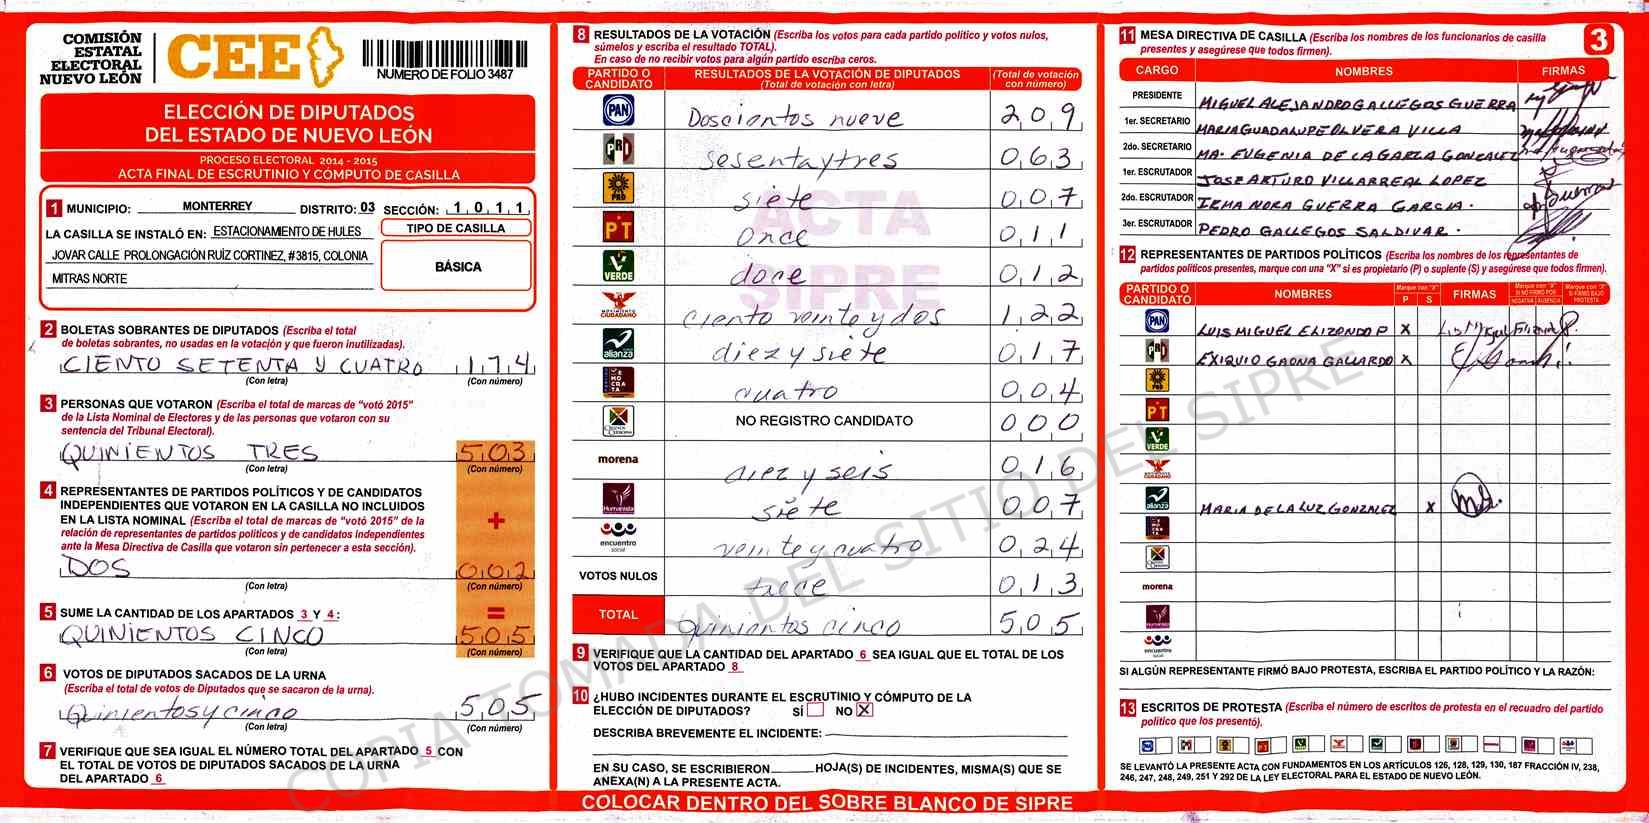 COMISIÓN
ESTATAL
ELECTORAL
NUEVO LEÓN
CEE
NUMERO DE FOLIO 3487
ELECCIÓN DE DIPUTADOS
DEL ESTADO DE NUEVO LEÓN
PROCESO ELECTORAL 2014 - 2015
ACTA FINAL DE ESCRUTINIO Y CÓMPUTO DE CASILLA
1 MUNICIPIO: MONTERREY DISTRITO: 03 SECCIÓN: 1 0 1 1
LA CASILLA SE INSTALÓ EN: ESTACIONAMIENTO DE HULES
JOVAR CALLE PROLONGACIÓN RUÍZ CORTINEZ, #3815, COLONIA
MITRAS NORTE
TIPO DE CASILLA
BÁSICA
2 BOLETAS SOBRANTES DE DIPUTADOS (Escriba el total
de boletas sobrantes, no usadas en la votación y que fueron inutilizadas).
CIENTO SETENTA Y CUATRO 1 7 4
(Con letra) (Con número)
3 PERSONAS QUE VOTARON (Escriba el total de marcas de "votó 2015"
de la Lista Nominal de Electores y de las personas que votaron con su
sentencia del Tribunal Electoral).
QUINIENTOS TRES 5 0 3
(Con letra) (Con número)
4 REPRESENTANTES DE PARTIDOS POLÍTICOS Y DE CANDIDATOS
INDEPENDIENTES QUE VOTARON EN LA CASILLA NO INCLUIDOS
EN LA LISTA NOMINAL (Escriba el total de marcas de "votó 2015" de la
relación de representantes de partidos políticos y de candidatos independientes
ante la Mesa Directiva de Casilla que votaron sin pertenecer a esta sección).
+
DOS 0 0 2
(Con letra) (Con número)
=
5 SUME LA CANTIDAD DE LOS APARTADOS 3 Y 4:
QUINIENTOS CINCO 5 0 5
(Con letra) (Con número)
6 VOTOS DE DIPUTADOS SACADOS DE LA URNA
(Escriba el total de votos de Diputados que se sacaron de la urna).
Quinientos y cinco 5 0 5
(Con letra) (Con número)
7 VERIFIQUE QUE SEA IGUAL EL NÚMERO TOTAL DEL APARTADO 5 CON
EL TOTAL DE VOTOS DE DIPUTADOS SACADOS DE LA URNA
DEL APARTADO 6
8 RESULTADOS DE LA VOTACIÓN (Escriba los votos para cada partido político y votos nulos,
súmelos y escriba el resultado TOTAL).
En caso de no recibir votos para algún partido escriba ceros.
PARTIDO O CANDIDATO RESULTADOS DE LA VOTACIÓN DE DIPUTADOS (Total de votación con letra) (Total de votación con número)
PAN Doscientos nueve 2 0 9
PRI sesenta y tres 0 6 3
PRD siete 0 0 7
PT once 0 1 1
VERDE doce 0 1 2
MOVIMIENTO CIUDADANO ciento veinte y dos 1 2 2
alianza diez y siete 0 1 7
DEMOCRATA cuatro 0 0 4
NO REGISTRO CANDIDATO 0 0 0
morena diez y seis 0 1 6
Humanista siete 0 0 7
encuentro social veinte y cuatro 0 2 4
VOTOS NULOS trece 0 1 3
TOTAL Quinientos cinco 5 0 5
ACTA
SIPRE
9 VERIFIQUE QUE LA CANTIDAD DEL APARTADO 6 SEA IGUAL QUE EL TOTAL DE LOS
VOTOS DEL APARTADO 8
10 ¿HUBO INCIDENTES DURANTE EL ESCRUTINIO Y CÓMPUTO DE LA
ELECCIÓN DE DIPUTADOS? SÍ NO X
DESCRIBA BREVEMENTE EL INCIDENTE:
EN SU CASO, SE ESCRIBIERON HOJA(S) DE INCIDENTES, MISMA(S) QUE SE
ANEXA(N) A LA PRESENTE ACTA.
COLOCAR DENTRO DEL SOBRE BLANCO DE SIPRE
11 MESA DIRECTIVA DE CASILLA (Escriba los nombres de los funcionarios de casilla
presentes y asegúrese que todos firmen).
3
CARGO NOMBRES FIRMAS
PRESIDENTE MIGUEL ALEJANDRO GALLEGOS GUERRA
1er. SECRETARIO MARIA GUADALUPE OLVERA VILLA
2do. SECRETARIO MA. EUGENIA DE LA GARZA GONZALEZ
1er. ESCRUTADOR JOSE ARTURO VILLARREAL LOPEZ
2do. ESCRUTADOR IRMA NORA GUERRA GARCIA.
3er. ESCRUTADOR PEDRO GALLEGOS SALDIVAR.
12 REPRESENTANTES DE PARTIDOS POLÍTICOS (Escriba los nombres de los representantes de
partidos políticos presentes, marque con una "X" si es propietario (P) o suplente (S) y asegúrese que todos firmen).
PARTIDO O CANDIDATO NOMBRES Marque con "X" P S FIRMAS Marque con "X" SI NO FIRMÓ POR: NEGATIVA AUSENCIA Marque con "X" SI FIRMÓ BAJO PROTESTA
PAN LUIS MIGUEL ELIZONDO P X
PRI EXIQUIO GAONA GALLARDO X
PRD
PT
VERDE
MOVIMIENTO CIUDADANO
alianza MARIA DE LA LUZ GONZALEZ X
morena
Humanista
encuentro social
SI ALGÚN REPRESENTANTE FIRMÓ BAJO PROTESTA, ESCRIBA EL PARTIDO POLÍTICO Y LA RAZÓN:
13 ESCRITOS DE PROTESTA (Escriba el número de escritos de protesta en el recuadro del partido
político que los presentó).
SE LEVANTÓ LA PRESENTE ACTA CON FUNDAMENTOS EN LOS ARTÍCULOS 126, 128, 129, 130, 187 FRACCIÓN IV, 238,
246, 247, 248, 249, 251 Y 292 DE LA LEY ELECTORAL PARA EL ESTADO DE NUEVO LEÓN.
COPIA TOMADA DEL SITIO DEL SIPRE